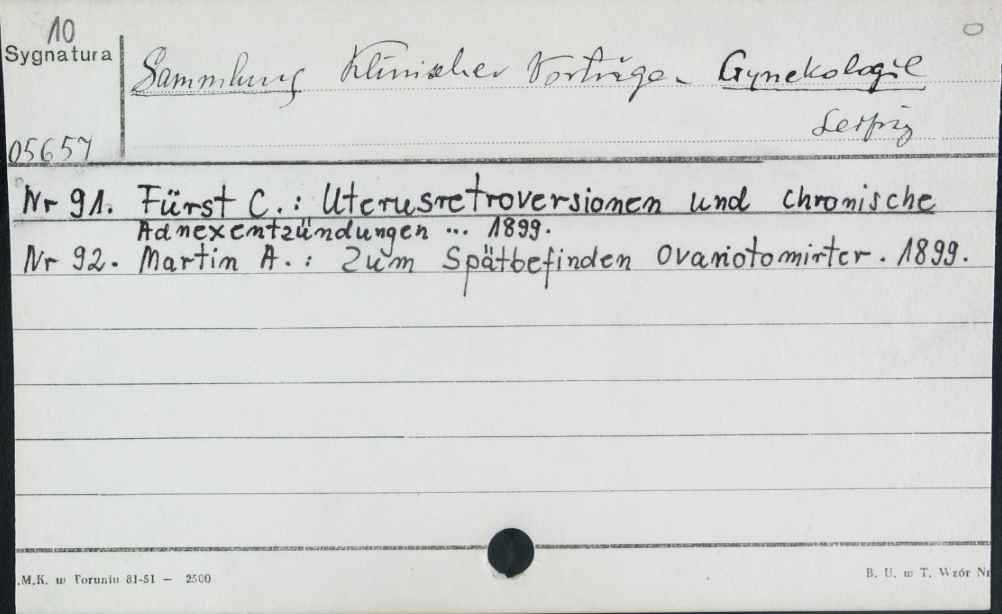 10
Sygnatura
Sammlung Klinischer Vorträge Gynekologie
Leipzig
05657
Nr 91. Fürst C.: Uterusretroversionen und chronische
Adnexentzündungen ... 1899.
Nr 92. Martin A.: Zum Spätbefinden Ovariotomirter. 1899.
.M.K. w Toruniu 81-51 — 2500
B. U. w T. Wzór Nr